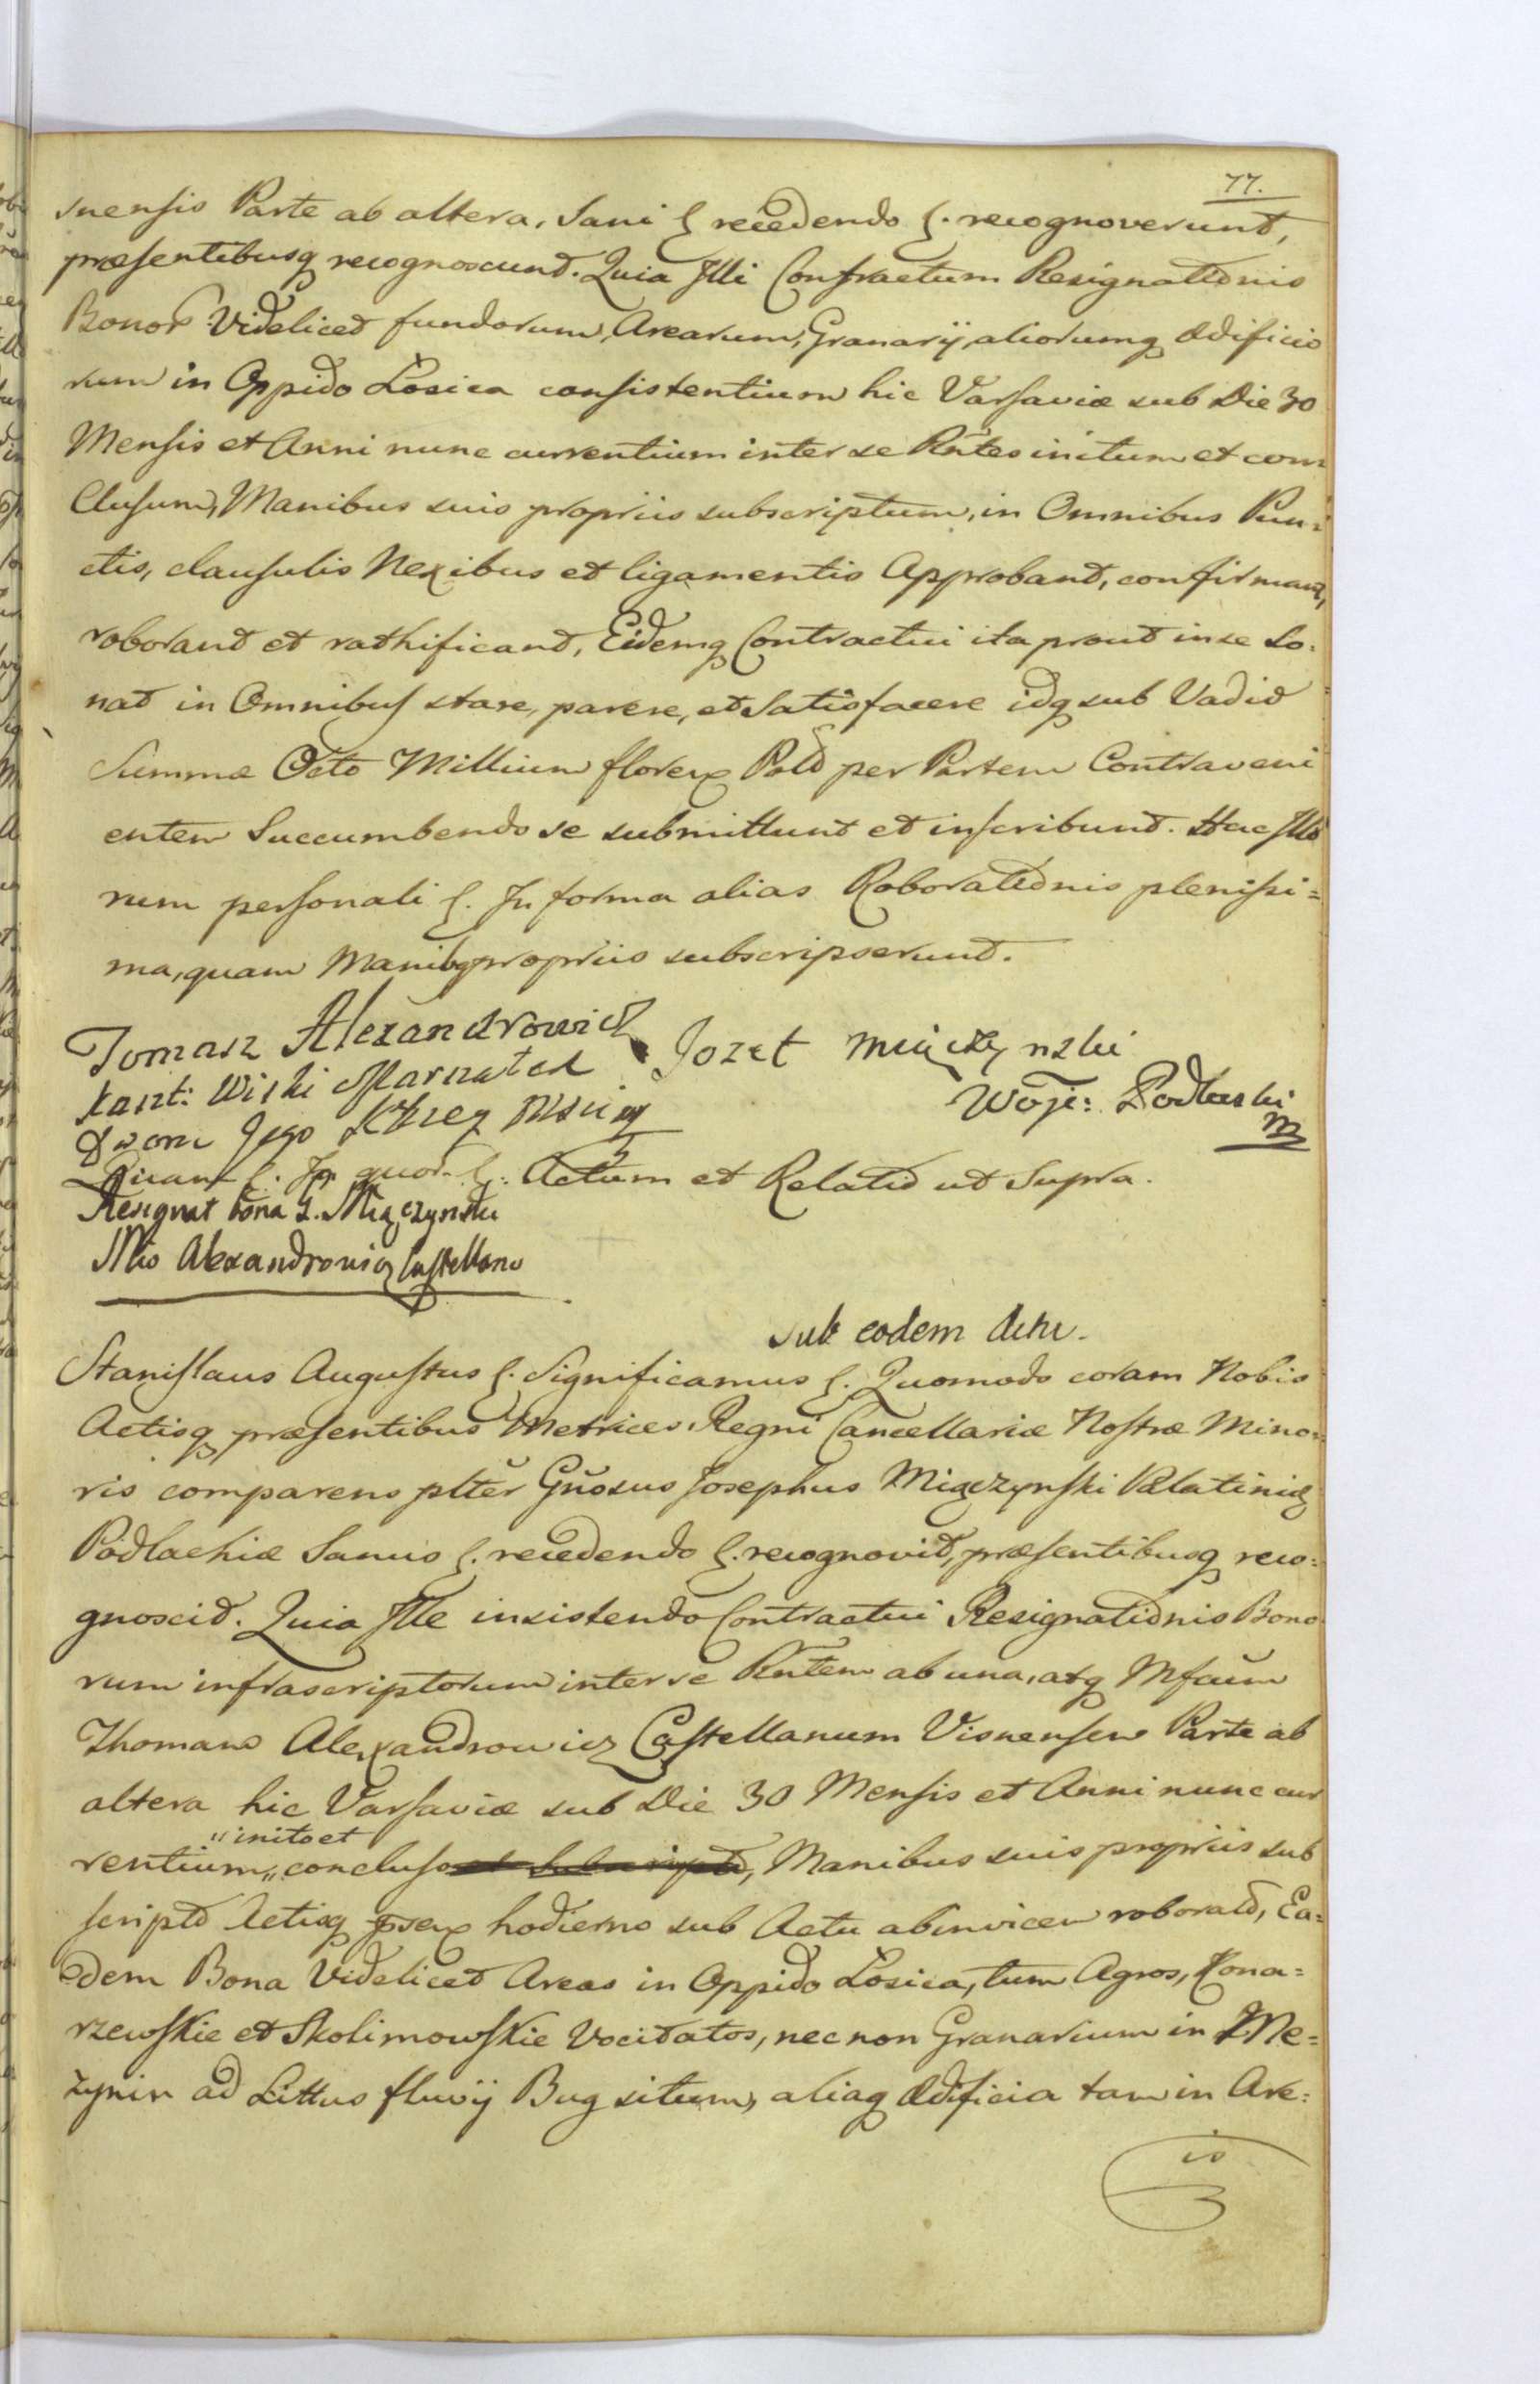 77.
snensis Parte ab altera, Sani ξ recedendo ξ. recognoverunt,
præsentibusq recognoscunt. Quia Illi Contractum Resignationis
Bonor Videlicet fundorum, Arearum, Granarÿ, aliorumq Ædificio
rum in Oppido Łosica consistentium hic Varsaviæ sub Die 30
Mensis et Anni nunc currentium inter se Rntes initum et con=
Clusum, Manibus suis propriis subscriptum, in Omnibus Pun=
ctis, clausulis Nexibus et ligamentis Approbant, confirmant,
roborant et rathificant, Eidemq Contractui ita prout in se So.
nat in Omnibus stare, parere, et Satisfacere idq sub Vadio
Summæ Octo Millium floren Pold per Partem Contraveni
entem Succumbendo se submittunt et inscribunt. Hac Illo
rum personali ξ. In forma alias Roborationis plenissi=
ma, quam Manibq propriis subscripserunt.
Tomasz Alexandrowicz Jozef Miączynski
Kaszt: Wiski Marszałek Woje: Podlaski
Dworu Jego Krolew Mści mp
ξ. In quor. ξ. Actum et Relatio ut Supra.
Resignat bona G. Miączynski
Mco Alexandrowicz Castellano
Sub eodem Actu.
Stanislaus Augustus ξ. Significamus ξ. Quomodo coram Nobis
Actisq præsentibus Metrices Regni Cancellariæ Nostræ Mino=
ris comparens plter Gnosus Josephus Miączynski Palatinid
Podlachiæ Sanus ξ. recedendo ξ. recognovit, præsentibusq reco=
gnoscit. Quia Ille insistendo Contractui Resignationis Bono
rum infrascriptorum inter se Rntem ab una, atq Mfcum
Thomam Alexandrowicz Castellanum Visnensem Parte ab
altera hic Varsaviæ sub Die 30 Mensis et Anni nunc cur
"inito et
rentium,, concluso et subscripto, Manibus suis propriis sub
scripto Actisq hodierno sub Actu abinvicem roborato, Ea=
dem Bona Videlicet Areas in Oppido Łosica, tum Agros, Kona=
rzewskie et Skolimowskie Vocitatos, nec non Granarium in Me=
zynin ad Littus fluvÿ Bug situm, aliaq Ædificia tam in Are:
is